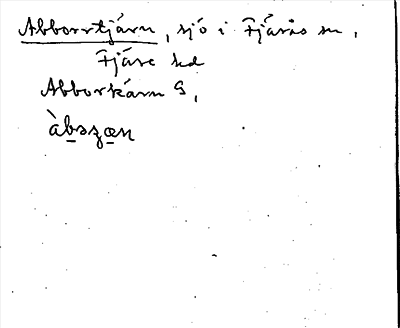 Abborrtjärn, sjö i Fjärås sn,
Fjäre hd
Abborkärn G,
àbszæn